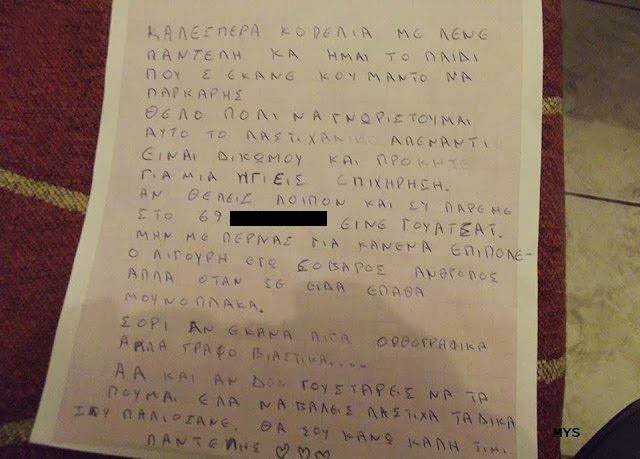 ΚΑΛΕΣΠΕΡΑ ΚΟΠΕΛΙΑ ΜΕ ΛΕΝΕ
ΠΑΝΤΕΛΗ ΚΑ ΗΜΑΙ ΤΟ ΠΑΙΔΙ
ΠΟΥ Σ ΕΚΑΝΕ ΚΟΥΜΑΝΤΟ ΝΑ
ΠΑΡΚΑΡΗΣ
ΘΕΛΟ ΠΟΛΙ ΝΑ ΓΝΩΡΙΣΤΟΥΜΑΙ
ΑΥΤΟ ΤΟ ΛΑΣΤΙΧΑΔΙΚΟ ΑΠΕΝΑΝΤΙ
ΕΙΝΑΙ ΔΙΚΩΜΟΥ ΚΑΙ ΠΡΟΚΗΤΕ
ΓΙΑ ΜΙΑ ΗΓΙΕΙΣ ΕΠΙΧΗΡΗΣΗ.
ΑΝ ΘΕΛΕΙΣ ΛΟΙΠΟΝ ΚΑΙ ΕΣΥ ΠΑΡΕ ΜΕ
ΣΤΟ 69 ΕΙΝΕ ΓΟΥΑΤΣΑΤ.
ΜΗΝ ΜΕ ΠΕΡΝΑΣ ΓΙΑ ΚΑΝΕΝΑ ΕΠΙΠΟΛΕ-
Ο ΛΙΓΟΥΡΗ ΕΓΩ ΣΟΒΑΡΟΣ ΑΝΘΡΟΠΟΣ
ΑΛΛΑ ΟΤΑΝ ΣΕ ΕΙΔΑ ΕΠΑΘΑ
ΜΟΥΝΟΠΛΑΚΑ.
ΣΟΡΙ ΑΝ ΕΚΑΝΑ ΛΙΓΑ ΟΡΘΟΓΡΑΦΙΚΑ
ΑΛΛΑ ΓΡΑΦΟ ΒΙΑΣΤΙΚΑ....
ΑΑ ΚΑΙ ΑΝ ΔΕΝ ΓΟΥΣΤΑΡΕΙΣ ΝΑ ΤΑ
ΠΟΥΜΑΙ ΕΛΑ ΝΑ ΒΑΛΕΙΣ ΛΑΣΤΙΧΑ ΤΑ ΔΙΚΑ
ΣΟΥ ΠΑΛΙΩΣΑΝΕ. ΘΑ ΣΟΥ ΚΑΝΩ ΚΑΛΗ ΤΙΜΙ
ΠΑΝΤΕΛΗΣ ♡♡♡
MYS